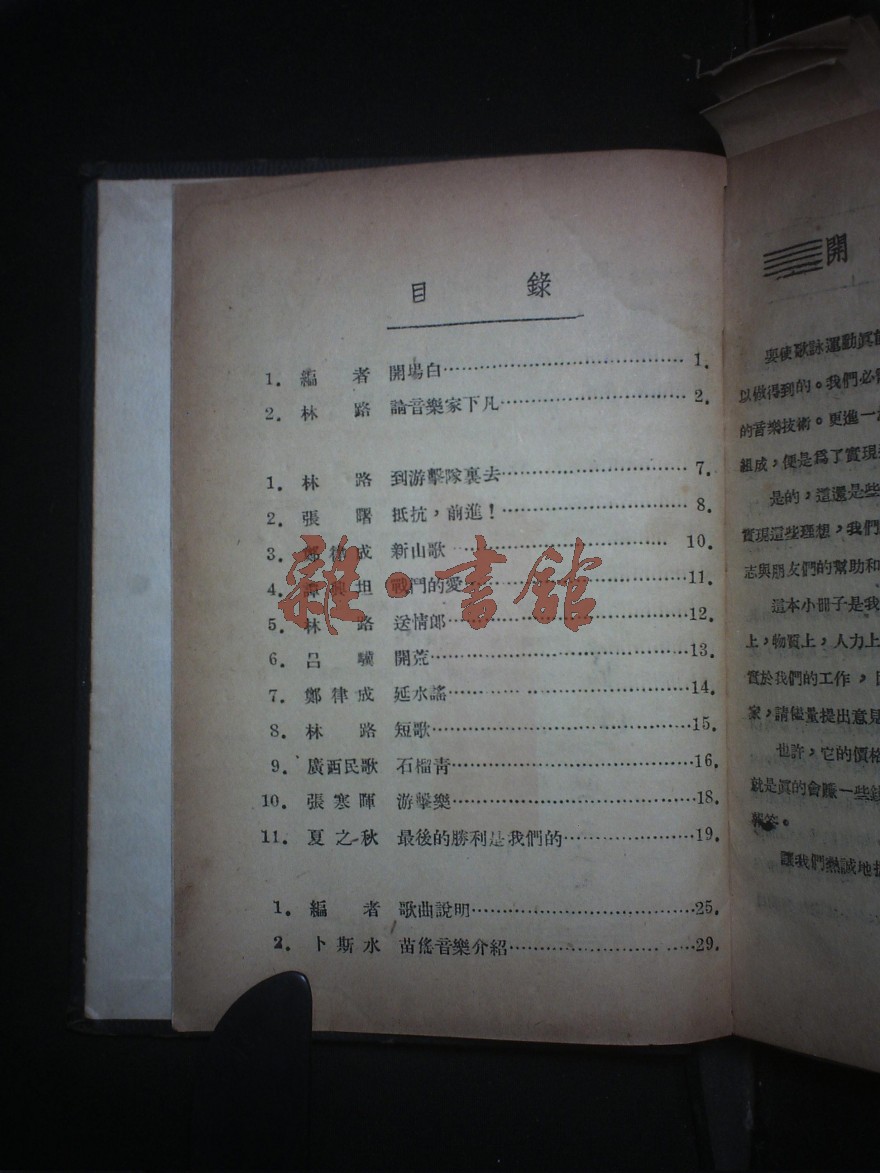 目 錄
1. 編 者 開場白 1.
2. 林 路 論音樂家下凡 2.
1. 林 路 到游擊隊裏去 7.
2. 張 曙 抵抗,前進! 8.
3. 鄭律成 新山歌 10.
4. 戰鬥的愛 11.
5. 林 路 送情郎 12.
6. 呂 驥 開荒 13.
7. 鄭律成 延水謠 14.
8. 林 路 短歌 15.
9. 廣西民歌 石榴青 16.
10. 張寒暉 游擊樂 18.
11. 夏之秋 最後的勝利是我們的 19.
1. 編 者 歌曲說明 25.
2. 卜斯水 苗傜音樂介紹 29.
雜·書館
開
要使歌詠運動眞
以做得到的。我們必
的音樂技術。更進一
組成,便是爲了實現
是的,這還是些
實現這些理想,我們
志與朋友們的幫助和
這本小冊子是我
上,物質上,人力上
實於我們的工作,
家,請儘量提出意見
也許,它的價格
就是眞的會賺一些
讓我們熱誠地